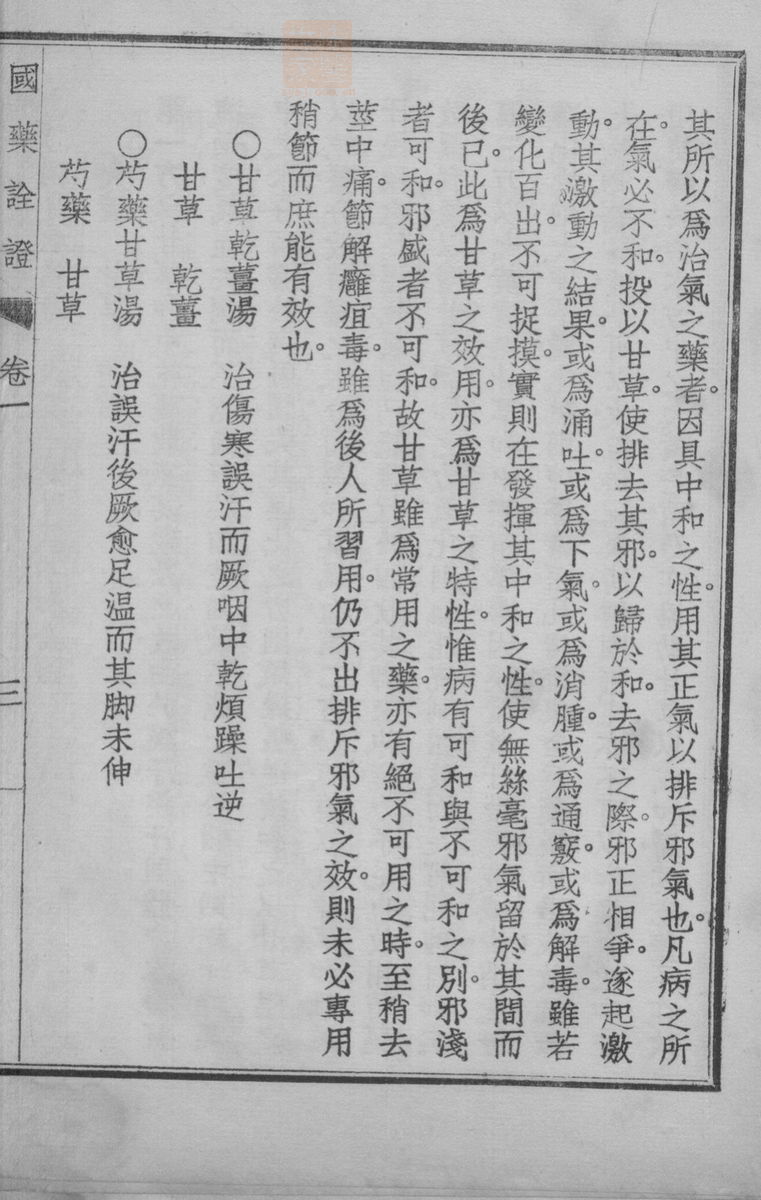 其所以爲治氣之藥者。因具中和之性。用其正氣以排斥邪氣也。凡病之所
在。氣必不和。投以甘草。使排去其邪。以歸於和。去邪之際。邪正相爭。遂起激
動。其激動之結果。或爲涌吐。或爲下氣。或爲消腫。或爲通竅。或爲解毒。雖若
變化百出。不可捉摸。實則在發揮其中和之性。使無絲毫邪氣留於其間而
後已。此爲甘草之效用。亦爲甘草之特性。惟病有可和與不可和之別。邪淺
者可和。邪盛者不可和。故甘草雖爲常用之藥。亦有絕不可用之時。至稍去
莖中痛。節解癰疽毒。雖爲後人所習用。仍不出排斥邪氣之效。則未必專用
稍節而庶能有效也。
〇甘草乾薑湯 治傷寒誤汗而厥咽中乾煩躁吐逆
甘草 乾薑
〇芍藥甘草湯 治誤汗後厥愈足温而其脚未伸
芍藥 甘草
國藥詮證 卷一 三